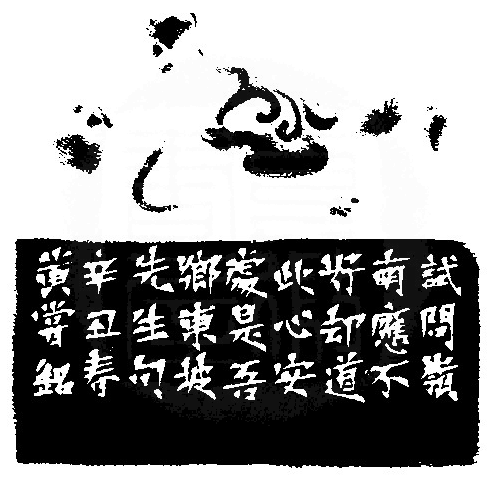 試問嶺
南應不
好却道
此心安
處是吾
鄉東坡
先生句
辛丑春
黃嘗銘